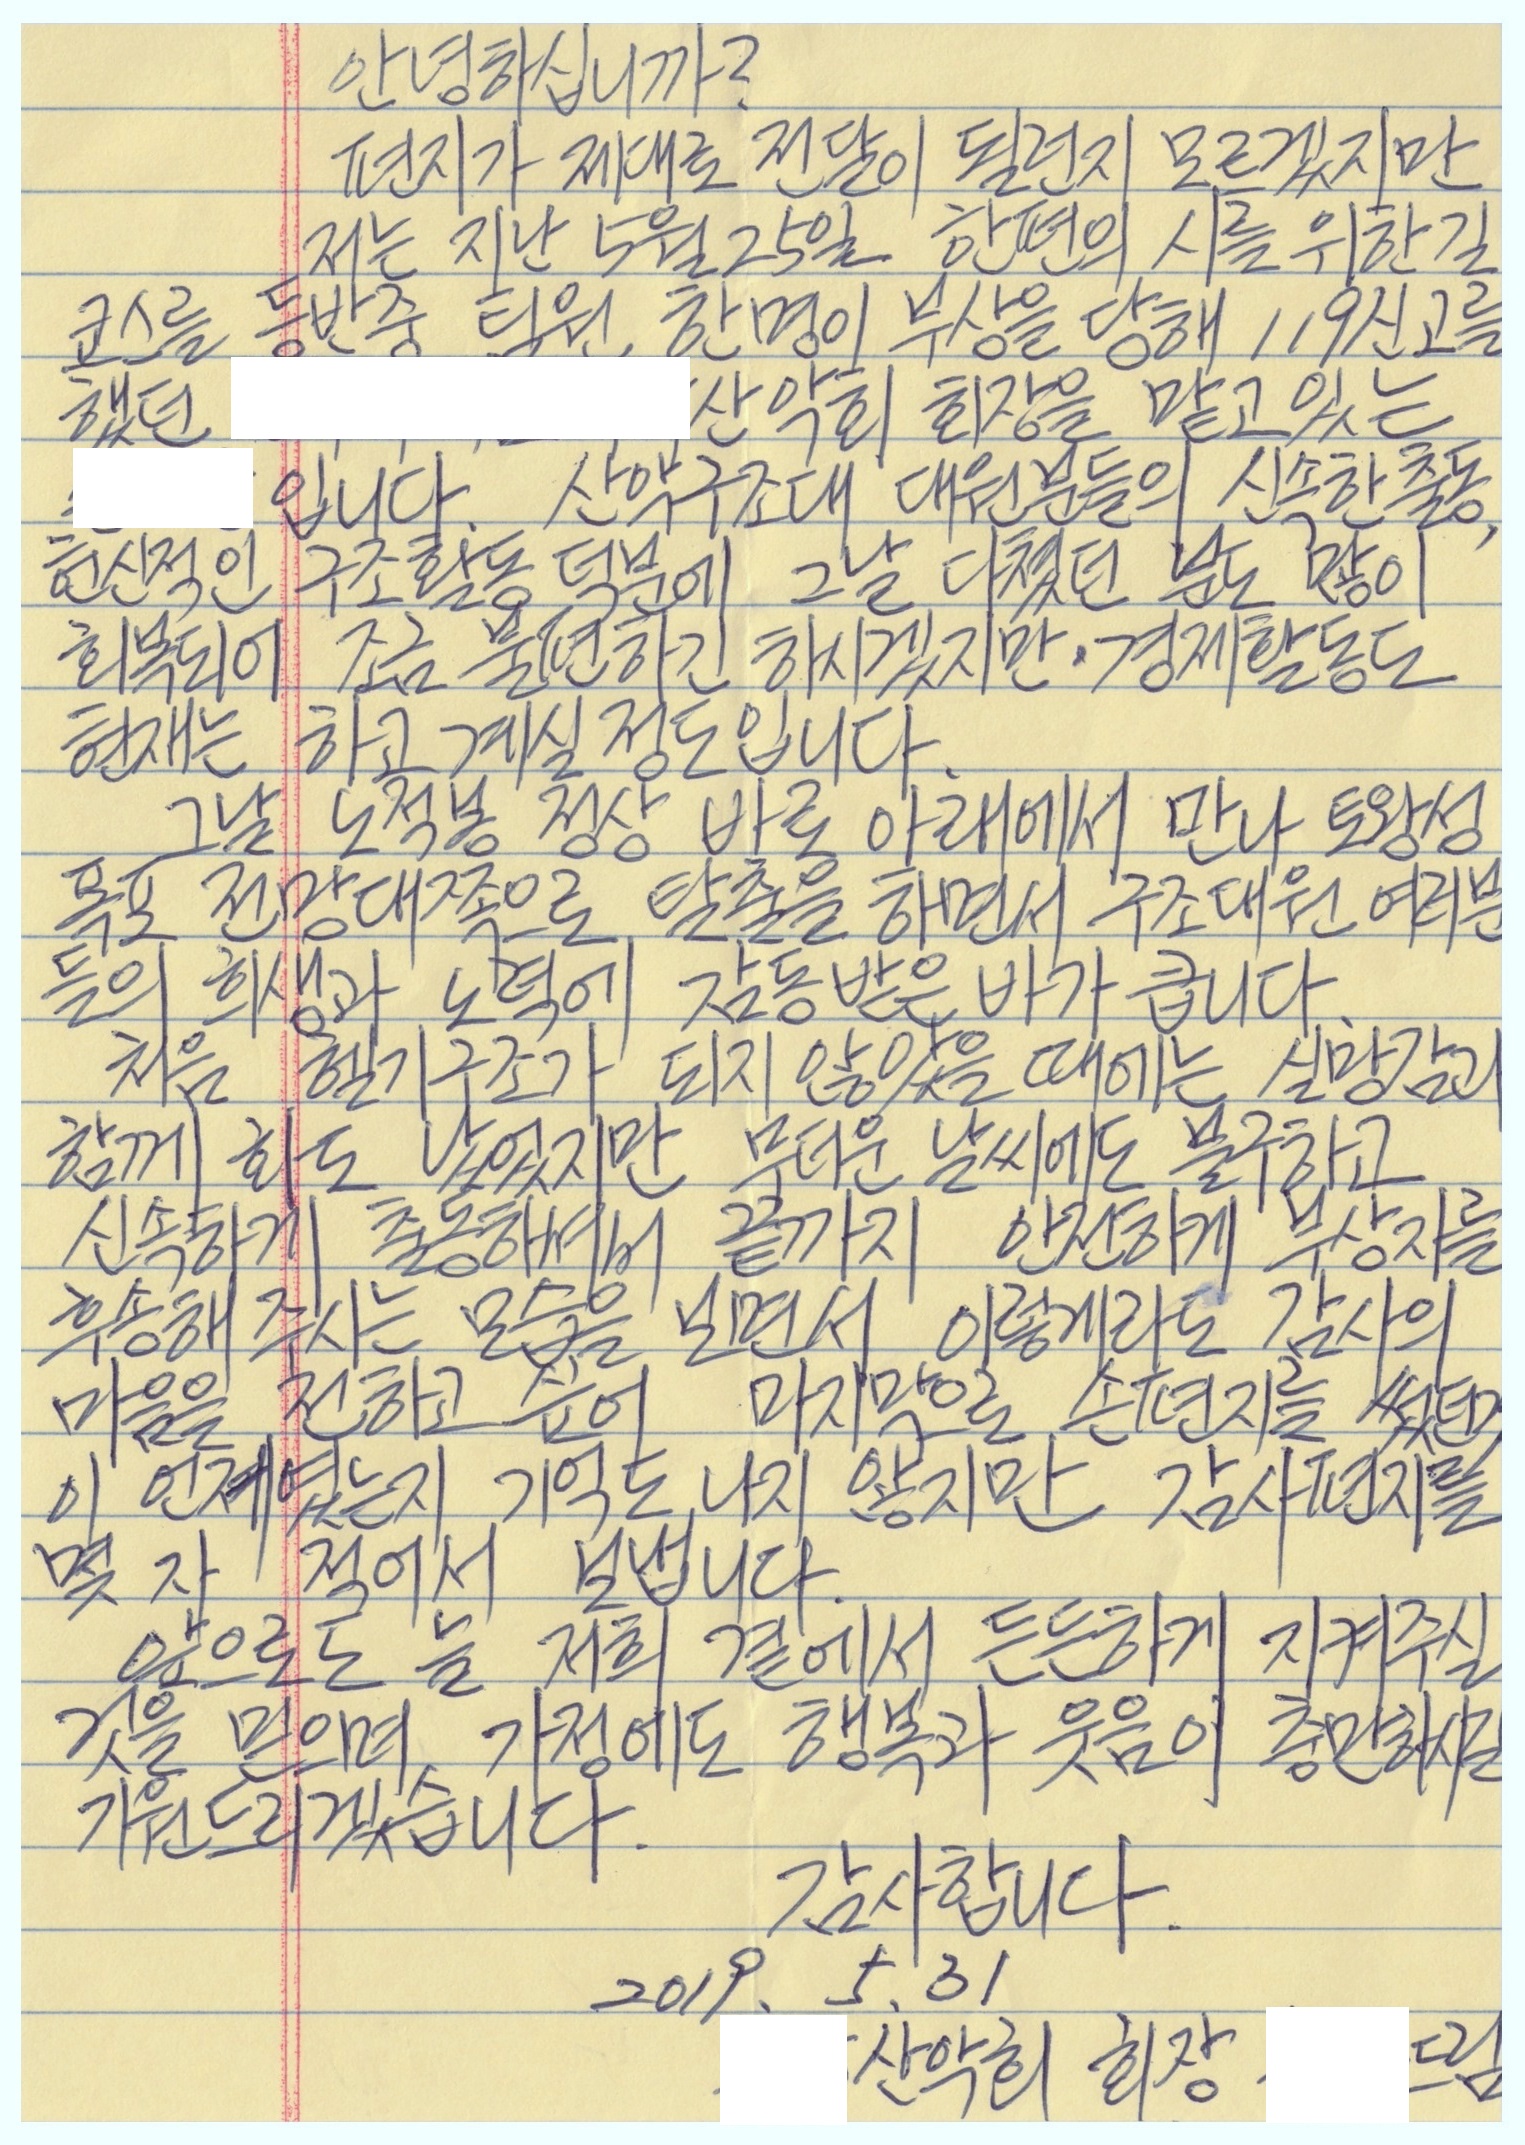 안녕하십니까?
편지가 제대로 전달이 될런지 모르겠지만
저는 지난 5월 25일 한편의 시를 위한 길
코스를 등반중 팀원 한명이 부상을 당해 119신고를
했던 산악회 회장을 맡고있는
입니다. 산악구조대 대원분들의 신속한 출동,
헌신적인 구조활동 덕분에 그날 다쳤던 분도 많이
회복되어 조금 불편하긴 하시겠지만 경제활동도
현재는 하고 계실 정도입니다.
그날 노적봉 정상 바로 아래에서 만나 토왕성
폭포 전망대쪽으로 탈출을 하면서 구조대원 여러분
들의 희생과 노력에 감동받은 바가 큽니다.
처음 헬기구조가 되지 않았을 때에는 실망감과
함께 화도 났었지만 무더운 날씨에도 불구하고
신속하게 출동하셔서 끝까지 안전하게 부상자를
후송해 주시는 모습을 보면서 이렇게라도 감사의
마음을 전하고 싶어 마지막으로 손편지를 썼던것
이 언제였는지 기억도 나지 않지만 감사편지를
몇 자 적어서 보냅니다.
앞으로도 늘 저희 곁에서 든든하게 지켜주실
것을 믿으며 가정에도 행복과 웃음이 충만하시길
기원드리겠습니다.
감사합니다.
2019. 5. 31
산악회 회장 드림